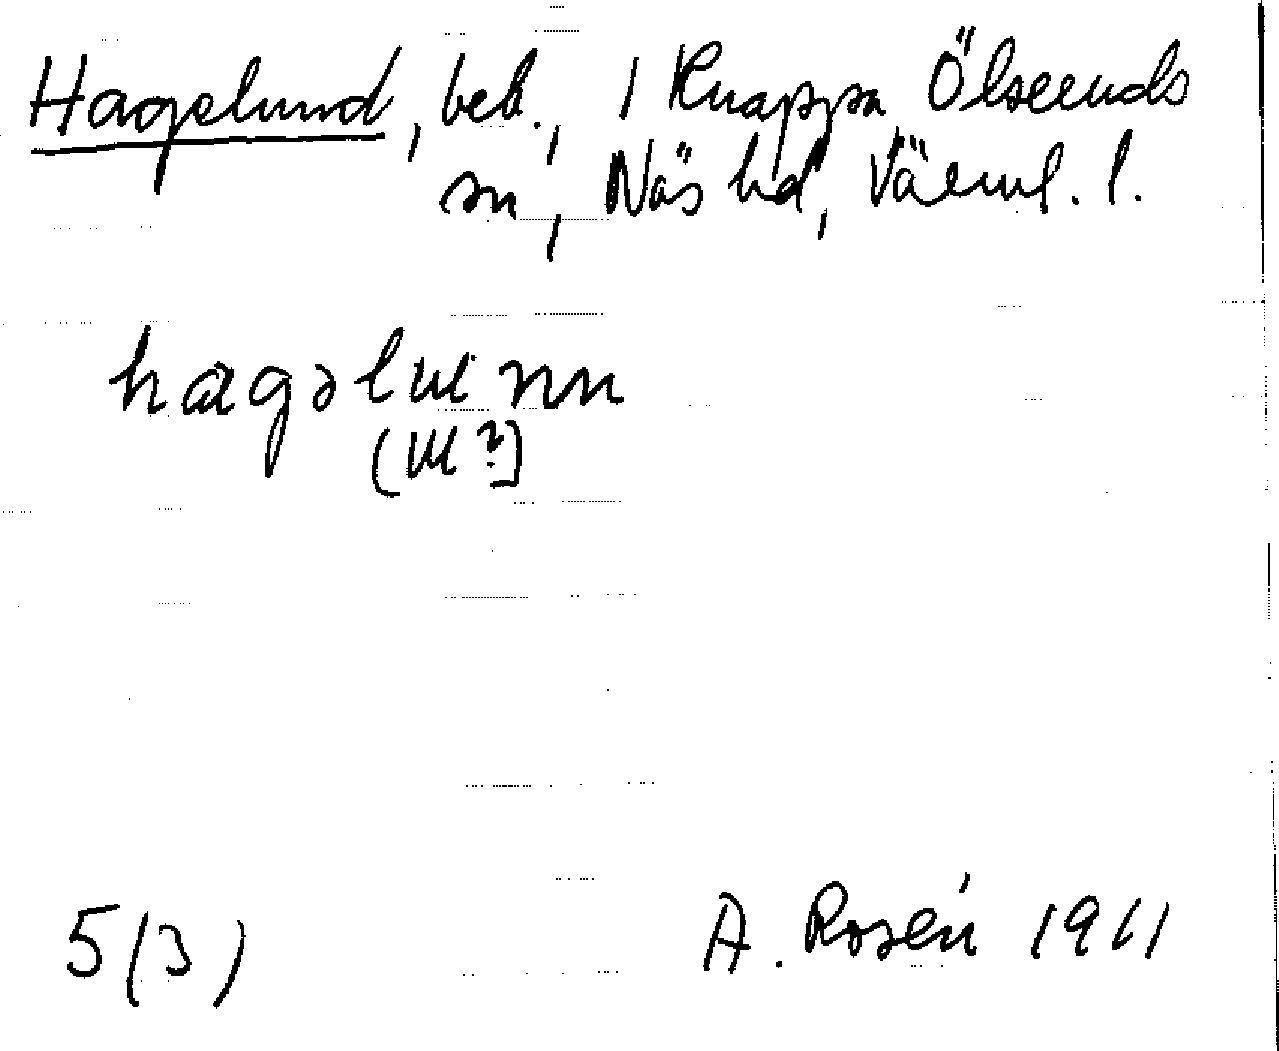 Hagelund, beb., i Knappa Ölseruds
sn, Näs hd, Värml. l.
hagəlunn
5(3) A. Rosén 1911